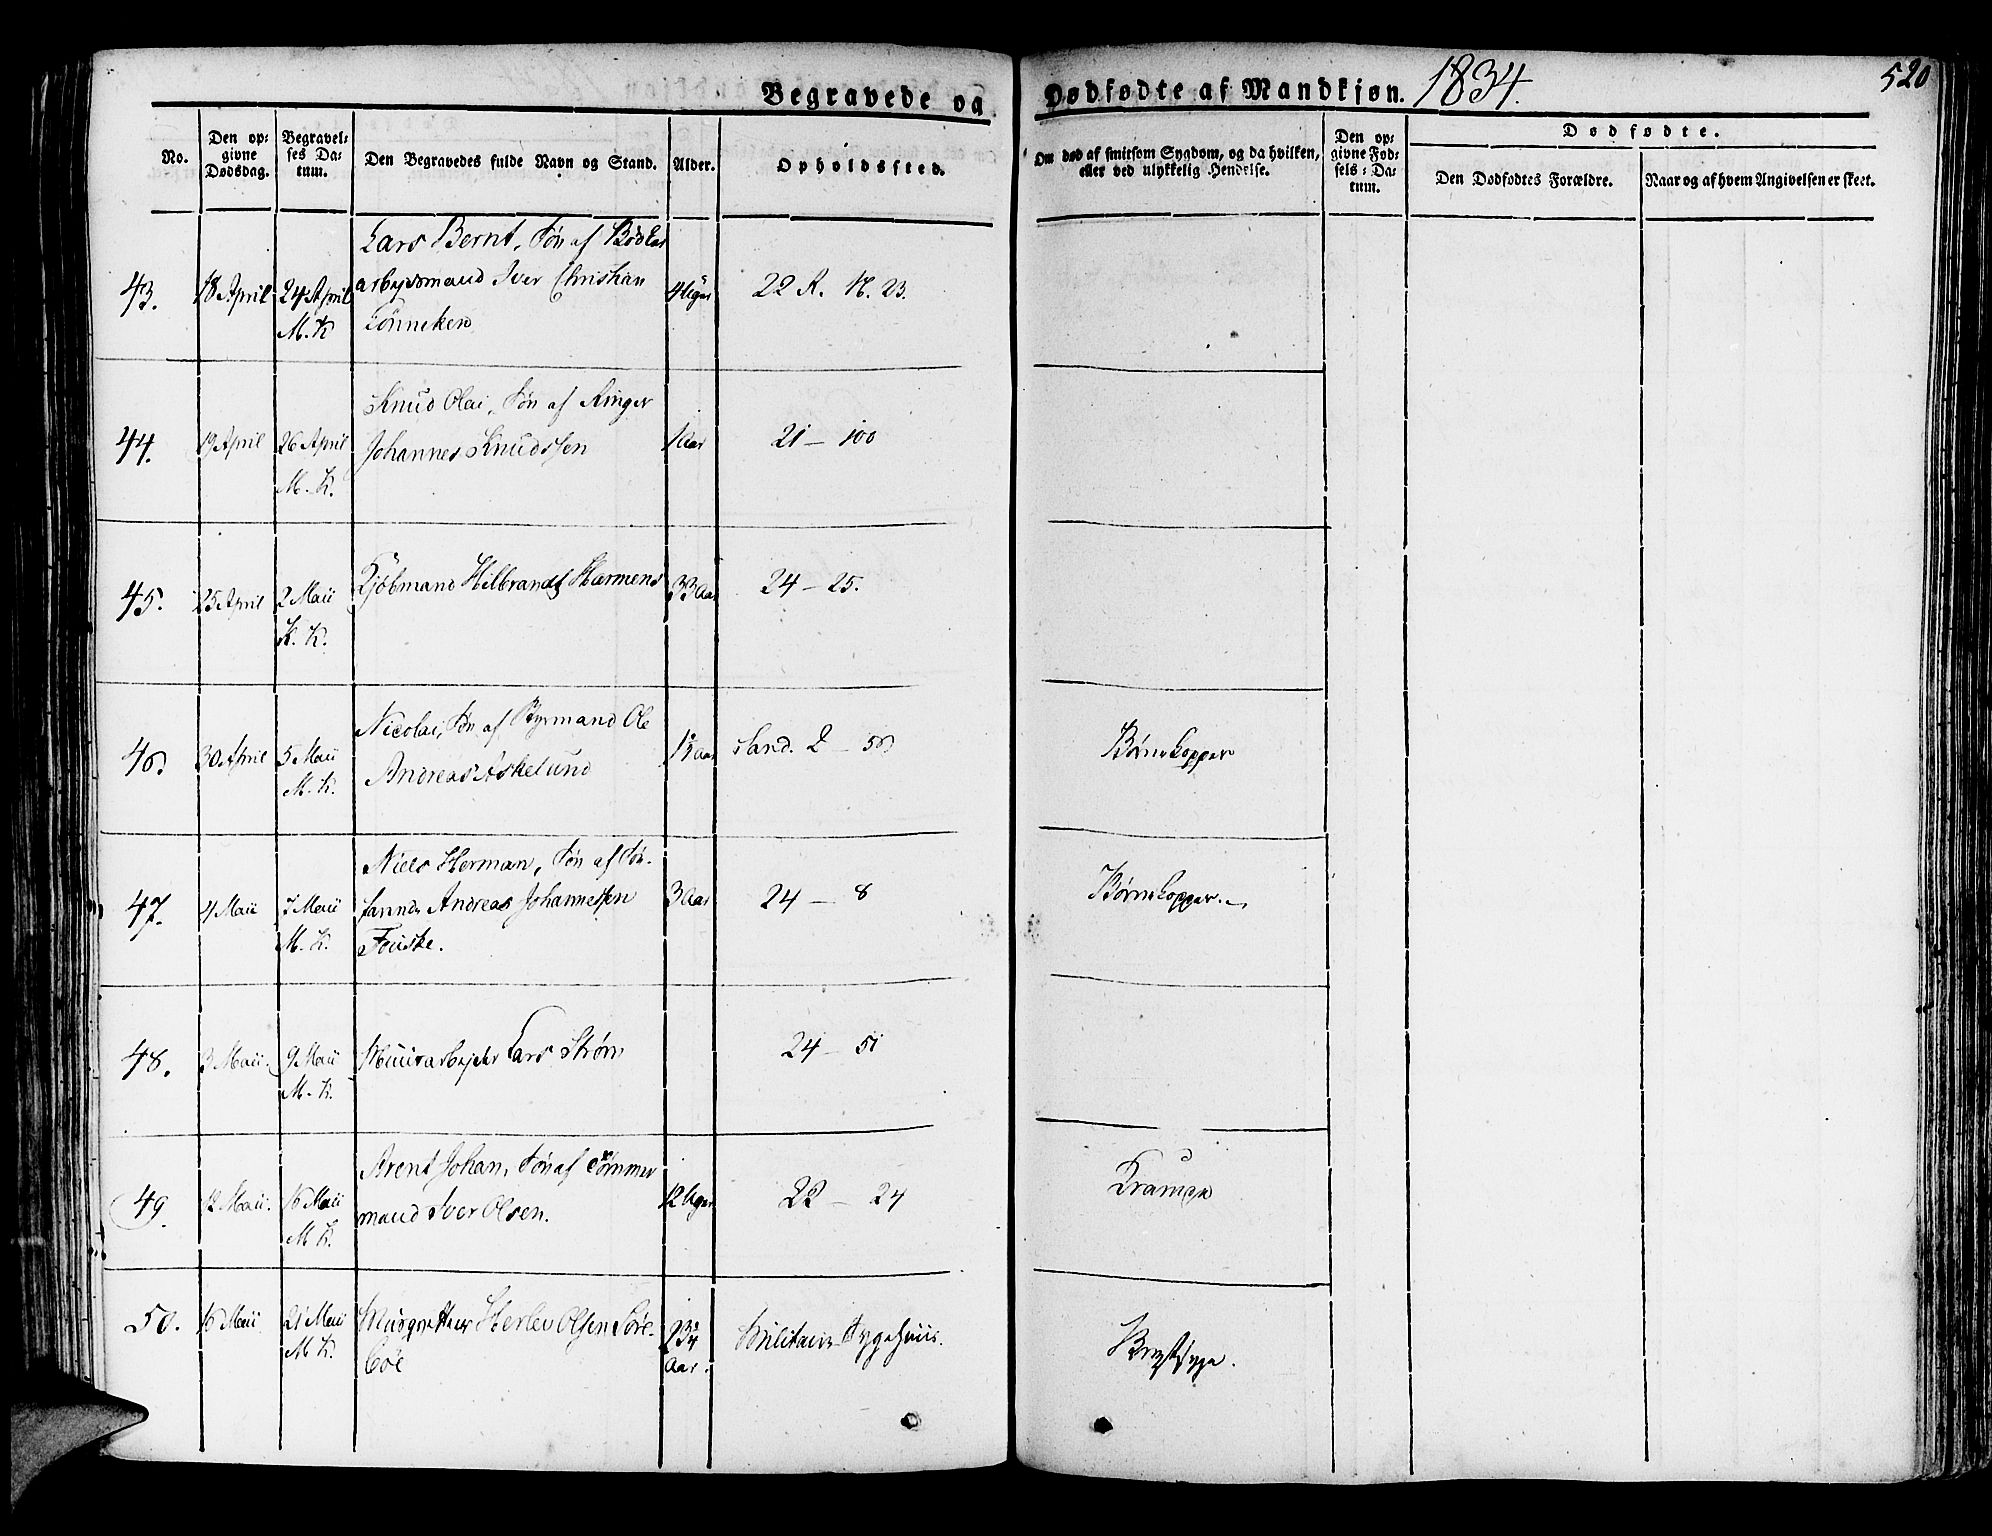 Begravede og Dødfødte af Mandkjøn. 1834.
520
No.
Den opgivne Dødsdag.
Begravelses Datum.
Den Begravedes fulde Navn og Stand.
Alder.
Opholdssted.
Om død af smitsom Sygdom, og da hvilken, eller ved ulykkelig Hendelse.
Den opgivne Fødsels-Datum.
Dødfødte.
Den Dødfødtes Forældre.
Naar og af hvem Angivelsen er skeet.
43.
18 April
24 April
M. K
Lars Bernt, Søn af Bødker
arbeydsmand Iver Christian
Tönneken
4 Uger
22 R. N. 23.
44.
19 April
26 April
M. K.
Knud Olai, Søn af Ringer
Johannes Knudssen
1 Aar
21 - 100
45.
25 April
2 Maii
K. K.
Kjöbmand Hilbrandt Harmens
33 Aar
24 - 25.
46.
30 April
5 Maii
M. K.
Nicolai, Søn af Styrmand Ole
Andreas Askelund
1½ aar
Sand. 2 - 56
Børnekopper
47.
4 Maii
7 Maii
M. K.
Niels Herman, Søn af Sø-
farende Andreas Johannessen
Fouske.
3 Aar
24 - 8
Børnekopper.
48.
3 Maii.
9 Maii
M. K.
Muurarbejder Lars Strøm
24 - 51
49.
12 Maii.
16 Maii
M K.
Arent Johan, Søn af Tømmer
mand Iver Olsen.
12 Uger
22 - 24
Krampe
50.
16 Maii
21 Maii
M K.
Musqvetteer Herlev Olsen Søre-
böe
23¾
Aar.
Militaire Sygehuus.
Brystsyge.